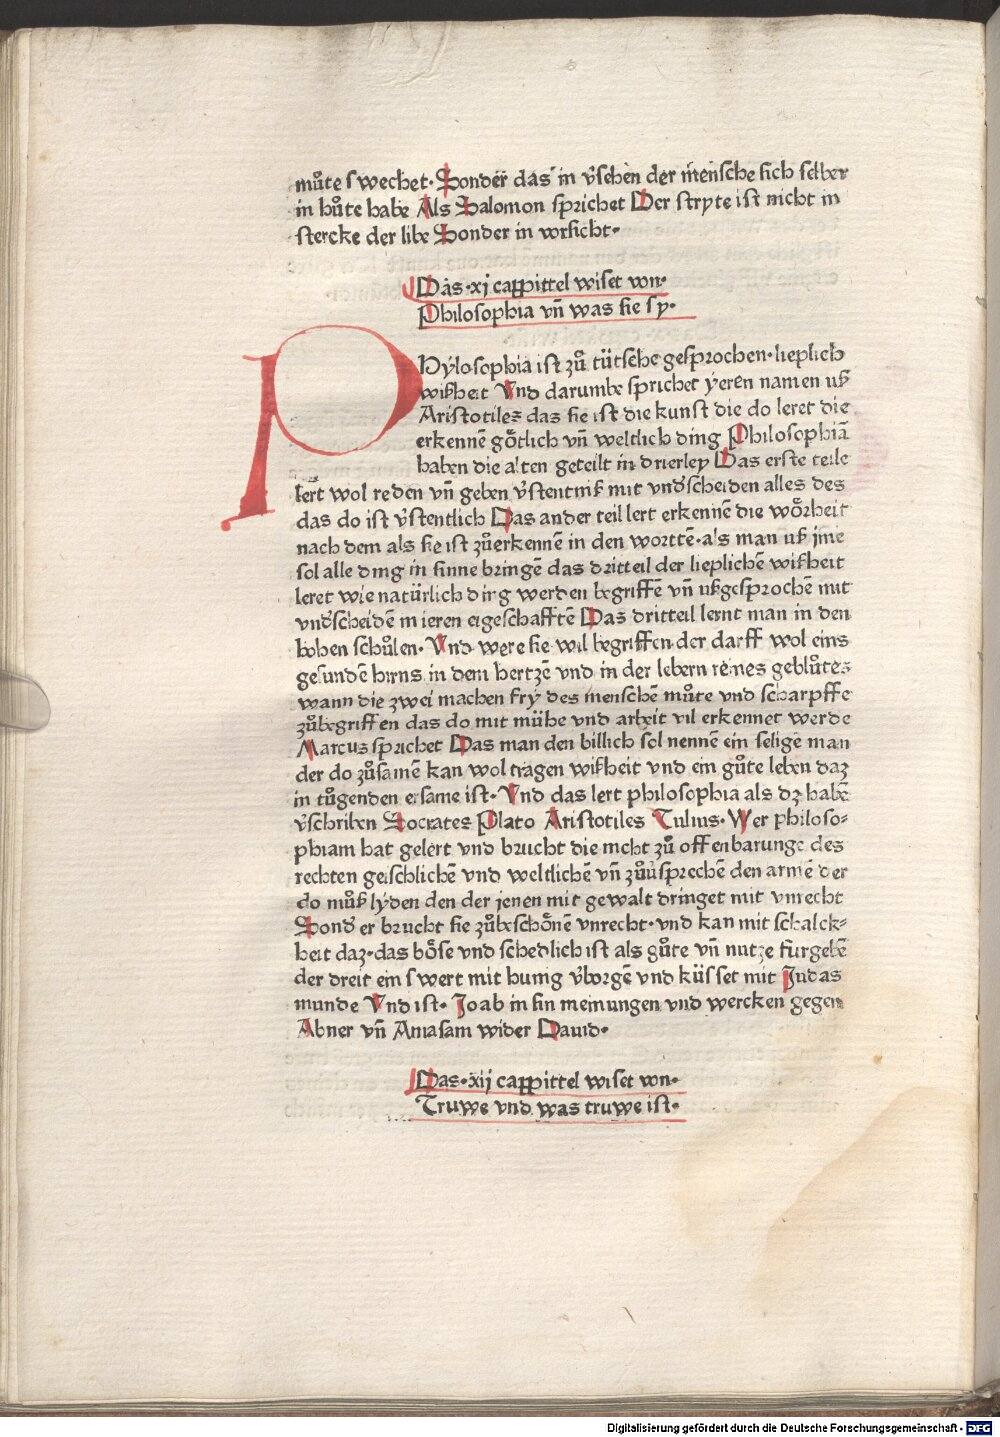 můte swechet· Sonder das in v̄sehen der mensche sich selber
in hůte habe Als Salomon sprichet Der stryte ist nicht in
stercke der libe Sonder in vorsicht·
Das·xj cappittel wiset von·
Philosophia vn̄ was sie sy·
PHylosophia ist zů tütsche gesprochen·lieplich
wißheit Vnd darumbe sprichet yeren namen uß
Aristotiles das sie ist die kunst die do leret die
erkennē götlich vn̄ weltlich ding Philosophiā
haben die alten geteilt in drierley Das erste teile
lert wol reden vn̄ geben v̄stentniß mit vnd̄scheiden alles des
das do ist v̄stentlich Das ander teil lert erkennē die worheit
nach dem als sie ist zůerkennē in den worttē·als man uß jme
sol alle ding in sinne bringē das dritteil der lieplichē wißheit
leret wie natürlich ding werden begriffē vn̄ ußgesprochē mit
vnd̄scheidē in ieren eigeschafftē Das dritteil lernt man in den
hohen schůlen· Vnd were sie wil begriffen der darff wol eins
gesundē hirns in dem hertzē vnd in der lebern reines geblůtes
wann die zwei machen fry des menschē můte vnd scharpffe
zůbegriffen das do mit mühe vnd arbeit vil erkennet werde
Marcus sprichet Das man den billich sol nennē ein selige man
der do zůsamē kan wol tragen wißheit vnd ein gůte leben daz
in tůgenden ersame ist· Vnd das lert philosophia als dz habē
v̄schriben Socrates Plato Aristotiles Tulius· Wer philoso=
phiam hat gelert vnd brucht die nicht zů offenbarunge des
rechten geischlichē vnd weltlichē vn̄ zůůsprechē den armē der
do můß lyden den der jenen mit gewalt dringet mit vnrecht
Sond̄ er brucht sie zůbeschönē vnrecht·vnd kan mit schalck=
heit daz·das böse vnd schedlich ist als gůte vn̄ nutze furgebē
der dreit ein swert mit hunig v̄borgē vnd küsset mit Judas
munde Vnd ist· Joab in sin meinungen vnd wercken gegen
Abner vn̄ Amasam wider Dauid·
Das·xij cappittel wiset von·
Truwe vnd was truwe ist·
Digitalisierung gefördert durch die Deutsche Forschungsgemeinschaft - DFG